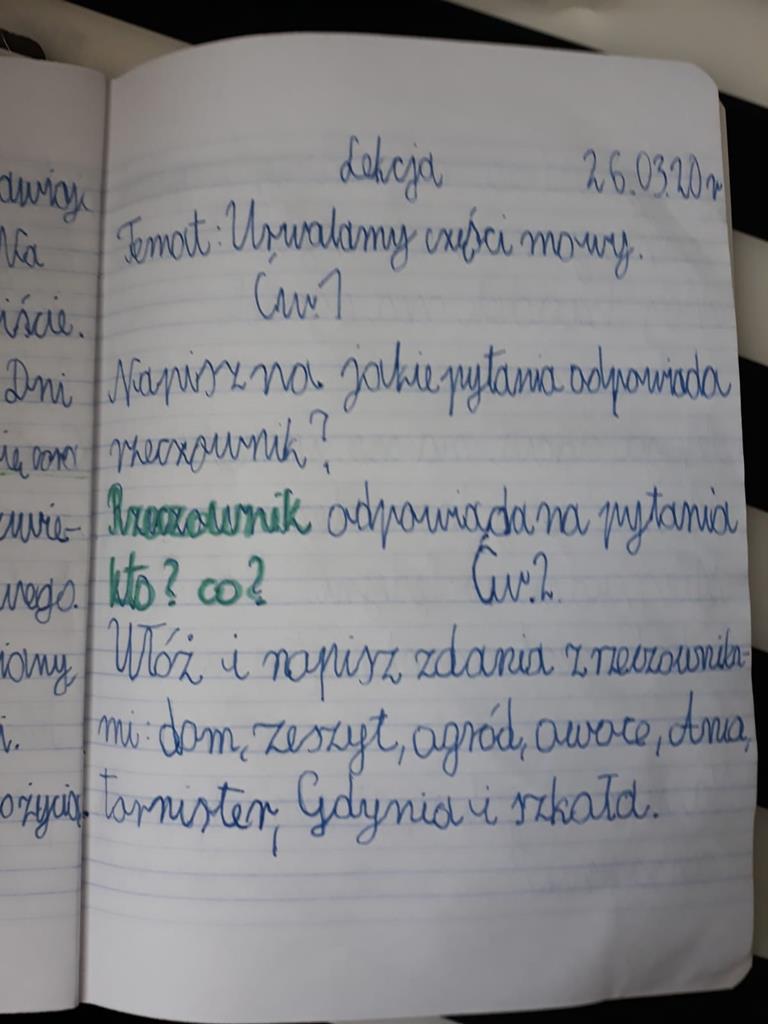 Lekcja 26.03.20r
Temat: Utrwalamy części mowy.
Ćw.1
Napisz na jakie pytania odpowiada
rzeczownik?
Rzeczownik odpowiada na pytania
kto? co? Ćw.2.
Ułóż i napisz zdania z rzeczownika-
mi: dom, zeszyt, ogród, owoce, Ania,
tornister, Gdynia i szkoła.
Na
iście.
Dni
wie-
wego.
i.
ożycia.